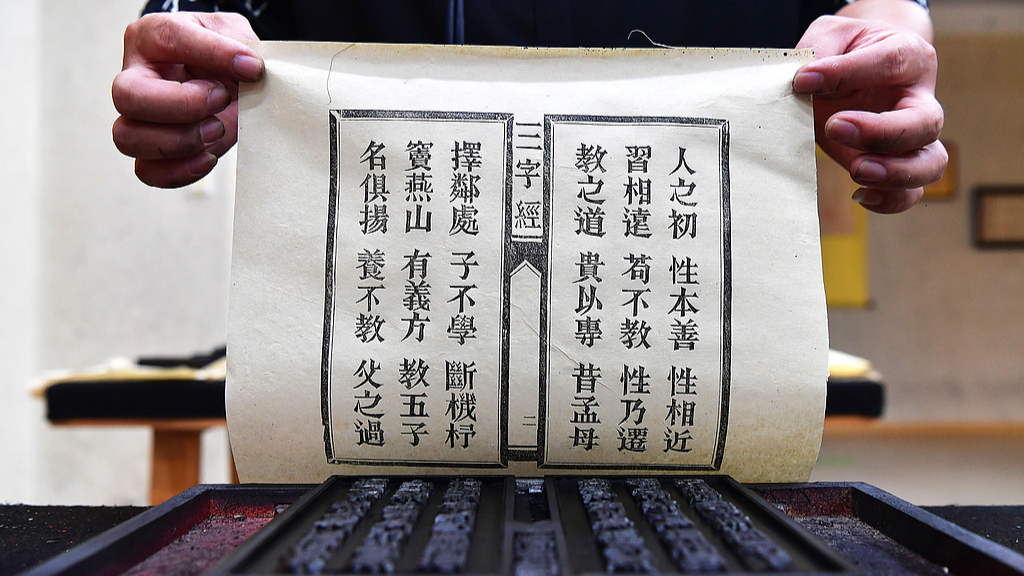 人之初 性本善 性相近
習相遠 苟不教 性乃遷
教之道 貴以專 昔孟母
三字經
二
擇鄰處 子不學 斷機杼
竇燕山 有義方 教五子
名俱揚 養不教 父之過